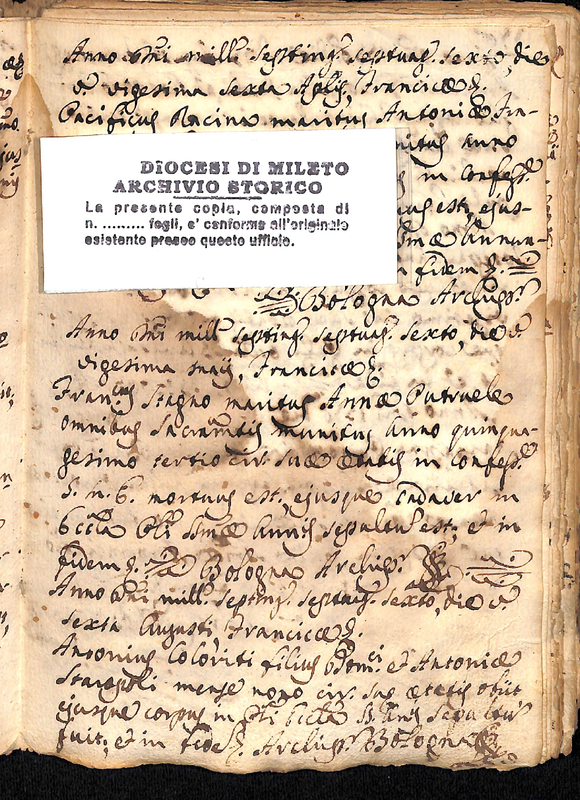 Anno Dñi mill. septing. septuag. sexto, die
vigesima sexta Aplis, Francicæ &.
Pacificus Racina maritus Antoniæ
anno
in confess.
est, ejus-
Annun-
in fidem &.
Bologna Archipr.
DIOCESI DI MILETO
ARCHIVIO STORICO
La presente copia, composta di
n. ......... fogli, e' conforme all'originale
esistente presso questo ufficio.
Anno Dñi mill. septing. septuag. sexto, die
vigesima maij, Francicæ &.
Franscus Stagno maritus Annæ Putruele
omnibus sacramtis munitus anno quinqua-
gesimo tertio cir. suæ ætatis in confess.
S. M. E. mortuus est, ejusque cadaver in
Eccla Ssmæ Annis sepultu est; et in
fidem &. Bologna Archipr.
Anno Dñi mill. septing. septuag. sexto, die
sexta Augusti, Francicæ &.
Antonius Coloriti filius et Antoniæ
mense nono cir. suæ ætatis obiit
ejusque corpus in Eccla sepultu
fuit; et in fide &. Archipr. Bologna